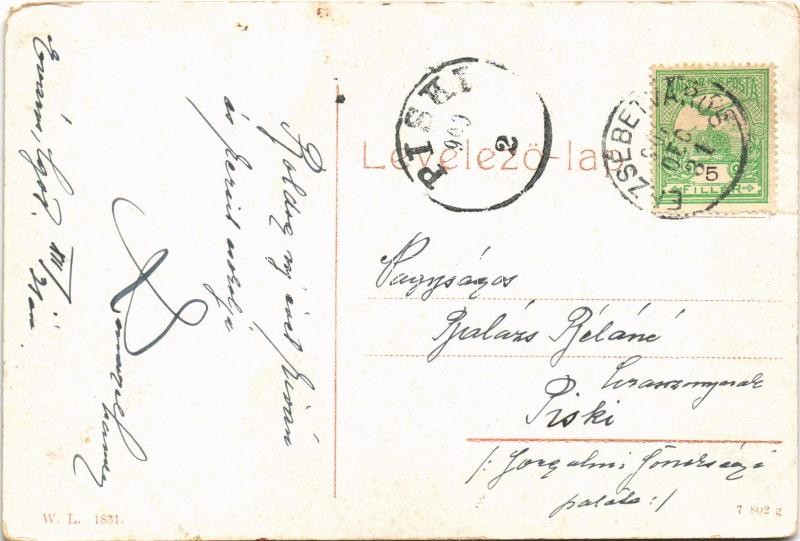 Levelező-lap
PISKI
909
2
ERZSÉBETVÁROS
DEC
31
MAGYAR KIR. POSTA
5
FILLÉR
Nagyságos
Balázs Béláné
Úrasszonynak
Piski
/: Forgalmi Főnökségi
palota :/
Boldog uj évet kiván
és kezeit csókolja
XII/31 én
W. L. 1831.
7 802 g